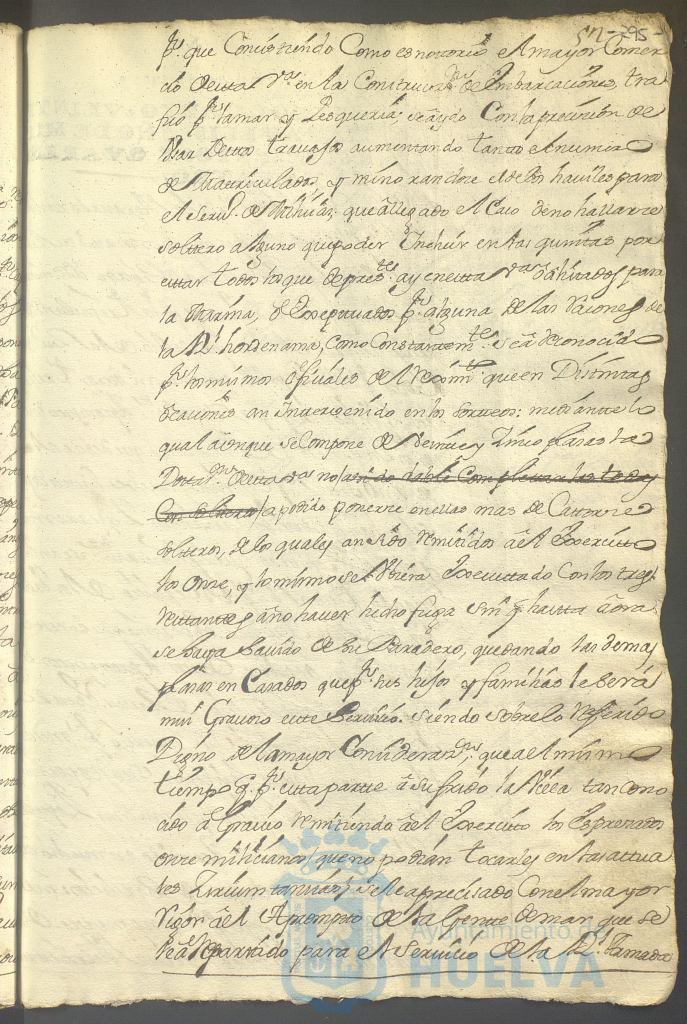 572-295-
pr. que Consistiendo Como es notorio el mayor Comer
cio de esta Va. en la Construcon. de Embarcaciones, tra
fico pr. la mar y Pesqueria, se à ido Con la precision de
usar de estos travajos aumentando tanto el numero
de Matriculados, y minorandose el de los haviles para
el Servo. de Milicias que à llegado el Caso de no hallarse
soltero alguno que poder Incluir en las quintas por
estar todos los que de preste. ay en esta Va. ò alistados para
la Marina, ò Exceptuados pr. alguna de las razones de
la Rl. hordenanza, como Constantemte. se à reconocido
pr. los mismos oficiales del Reximto. que en Distintas
ocaciones an Intervenido en los sorteos: mediante lo
qual aunque se Compone de Veinte y Zinco plazas la
Dotaon. de esta Va. no ha sido dable Completar las todas
Con solteros /a podido ponerse en ellas mas de Catorze
solteros, de los quales an sido remitidos à el Exercito
los Onze, y lo mismo se hubiera Executado Con los tres
restantes à no haver hecho fuga sin q. hasta aora
se haya savido de su Paradero, quedando las demas
plazas en Casados que pr. sus hijos y familias le serà
mui Gravoso este Servicio. siendo sobre lo Referido
Digno de la mayor Consideraon., que a el mismo
tiempo q. pr. esta parte à sufrido la Villa tan cono
cido à Gravio remitiendo à el Exercito los Expresados
onze milicianos (que no podian tocarles en las actua
les Zircunstancias) se le a precisado Con el mayor
Rigor à el Apronpto de la Gente de mar, que se
le à Repartido para el Servicio de la Rl. Armada
Ayuntamiento de
HUELVA